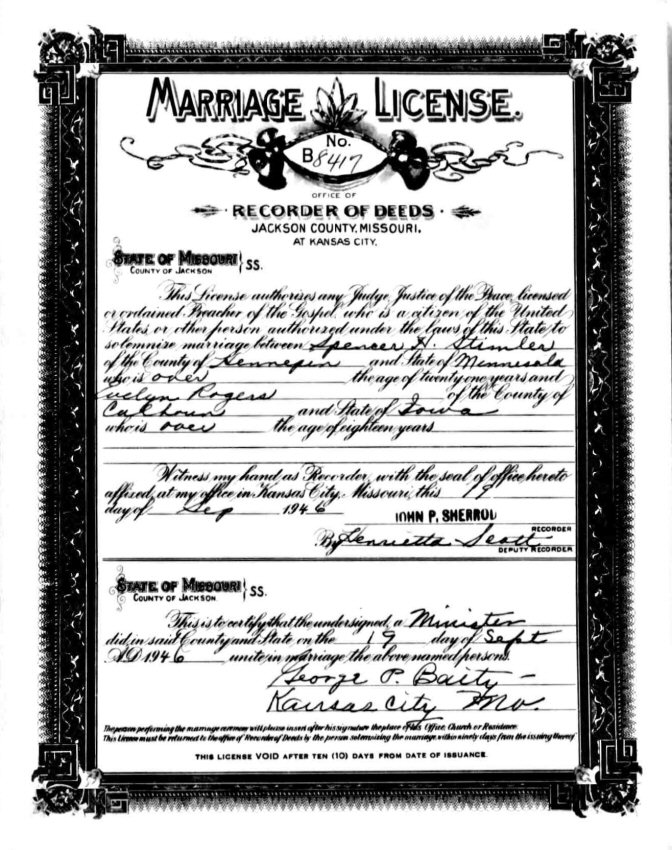 MARRIAGE LICENSE.
No.
B8417
OFFICE OF
RECORDER OF DEEDS
JACKSON COUNTY, MISSOURI,
AT KANSAS CITY.
STATE OF MISSOURI
COUNTY OF JACKSON } SS.
This License authorizes any Judge, Justice of the Peace, licensed
or ordained Preacher of the Gospel, who is a citizen of the United
States, or other person authorized under the laws of this State, to
solemnize marriage between Spencer H. Stimler
of the County of Hennepin and State of Minnesota
who is over the age of twenty one years and
Evelyn Rogers of the County of
Calhoun and State of Iowa
who is over the age of eighteen years
Witness my hand as Recorder, with the seal of office hereto
affixed, at my office in Kansas City, Missouri, this 19
day of Sep 1946
JOHN P. SHERROD
RECORDER
By Henrietta Scott
DEPUTY RECORDER
STATE OF MISSOURI
COUNTY OF JACKSON } SS.
This is to certify that the undersigned, a Minister
did, in said County and State on the 19 day of Sept
A.D. 1946 unite in marriage the above named persons.
George P. Baity -
Kansas City Mo.
The person performing the marriage ceremony will please insert after his signature the place of his Office, Church or Residence.
This License must be returned to the office of Recorder of Deeds by the person solemnizing the marriage, within ninety days from the issuing thereof
THIS LICENSE VOID AFTER TEN (10) DAYS FROM DATE OF ISSUANCE.